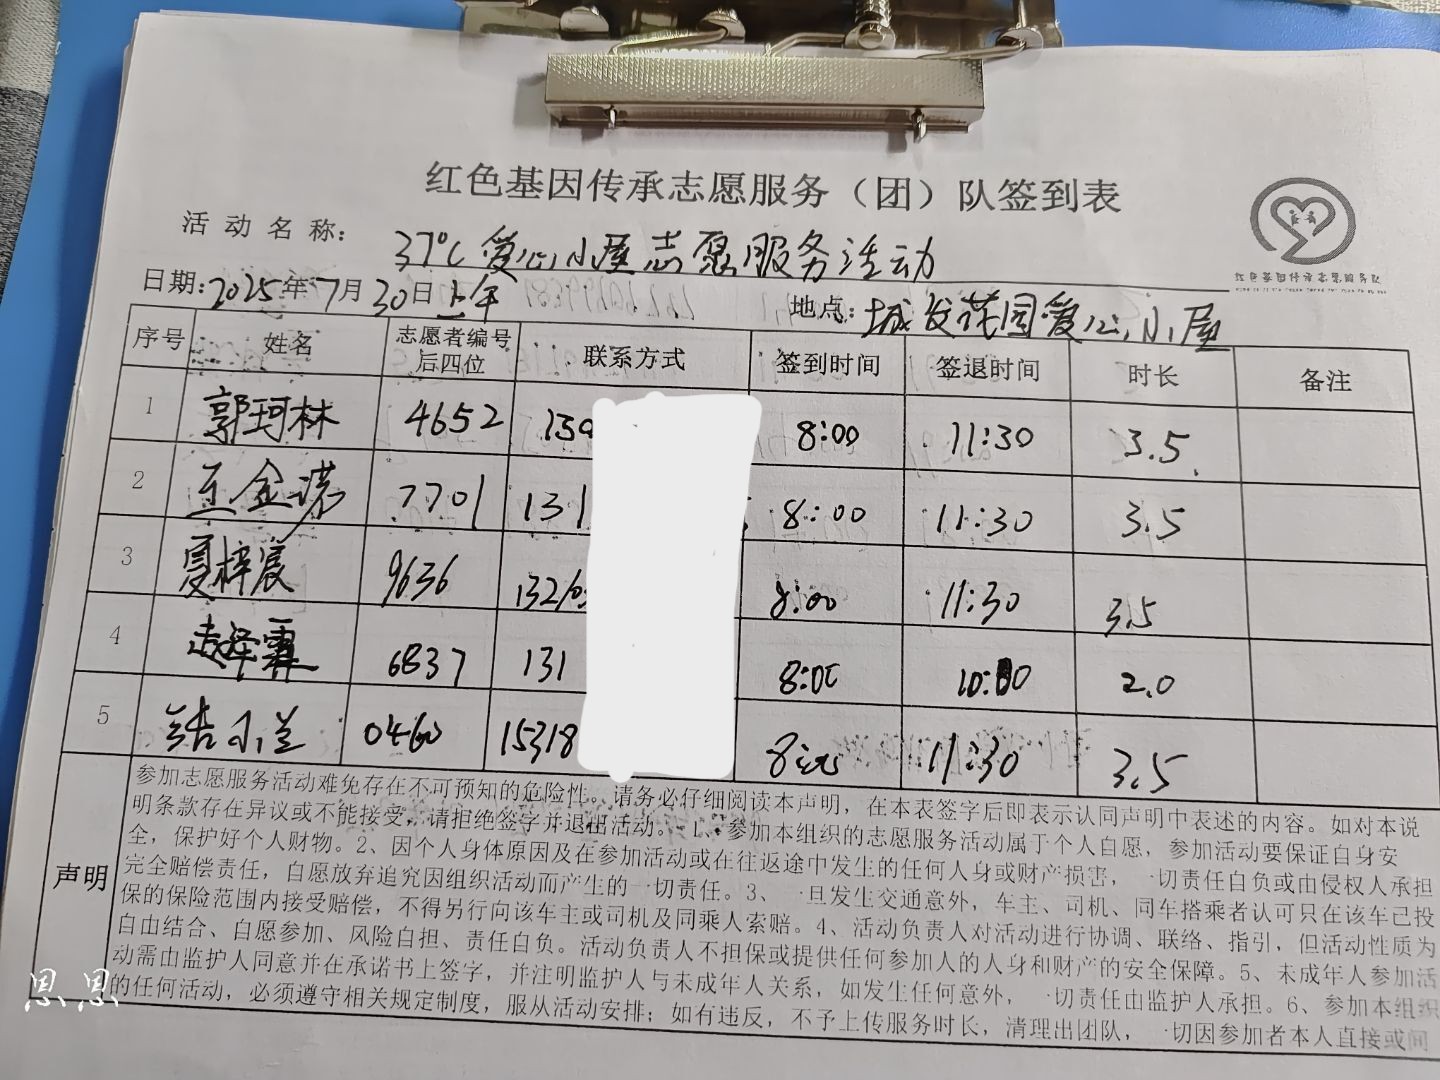 红色基因传承志愿服务（团）队签到表
红色基因传承志愿服务队
活动名称： 37℃爱心小屋志愿服务活动
日期：2025年7月30日上午 地点：城发花园爱心小屋
序号 姓名 志愿者编号后四位 联系方式 签到时间 签退时间 时长 备注
1 郭珂林 4652 150 8:00 11:30 3.5
2 王金诺 7701 131 8:00 11:30 3.5
3 夏梓宸 9636 132 8:00 11:30 3.5
4 6837 131 8:00 2.0
5 15318 11:30 3.5
声明
参加志愿服务活动难免存在不可预知的危险性。请务必仔细阅读本声明，在本表签字后即表示认同声明中表述的内容。如对本说
明条款存在异议或不能接受，请拒绝签字并退出活动。1、参加本组织的志愿服务活动属于个人自愿，参加活动要保证自身安
全，保护好个人财物。2、因个人身体原因及在参加活动或在往返途中发生的任何人身或财产损害，一切责任自负或由侵权人承担
完全赔偿责任，自愿放弃追究因组织活动而产生的一切责任。3、一旦发生交通意外，车主、司机、同车搭乘者认可只在该车已投
保的保险范围内接受赔偿，不得另行向该车主或司机及同乘人索赔。4、活动负责人对活动进行协调、联络、指引，但活动性质为
自由结合、自愿参加、风险自担、责任自负。活动负责人不担保或提供任何参加人的人身和财产的安全保障。5、未成年人参加活
动需由监护人同意并在承诺书上签字，并注明监护人与未成年人关系，如发生任何意外，一切责任由监护人承担。6、参加本组织
的任何活动，必须遵守相关规定制度，服从活动安排；如有违反，不予上传服务时长，清理出团队，一切因参加者本人直接或间
思思